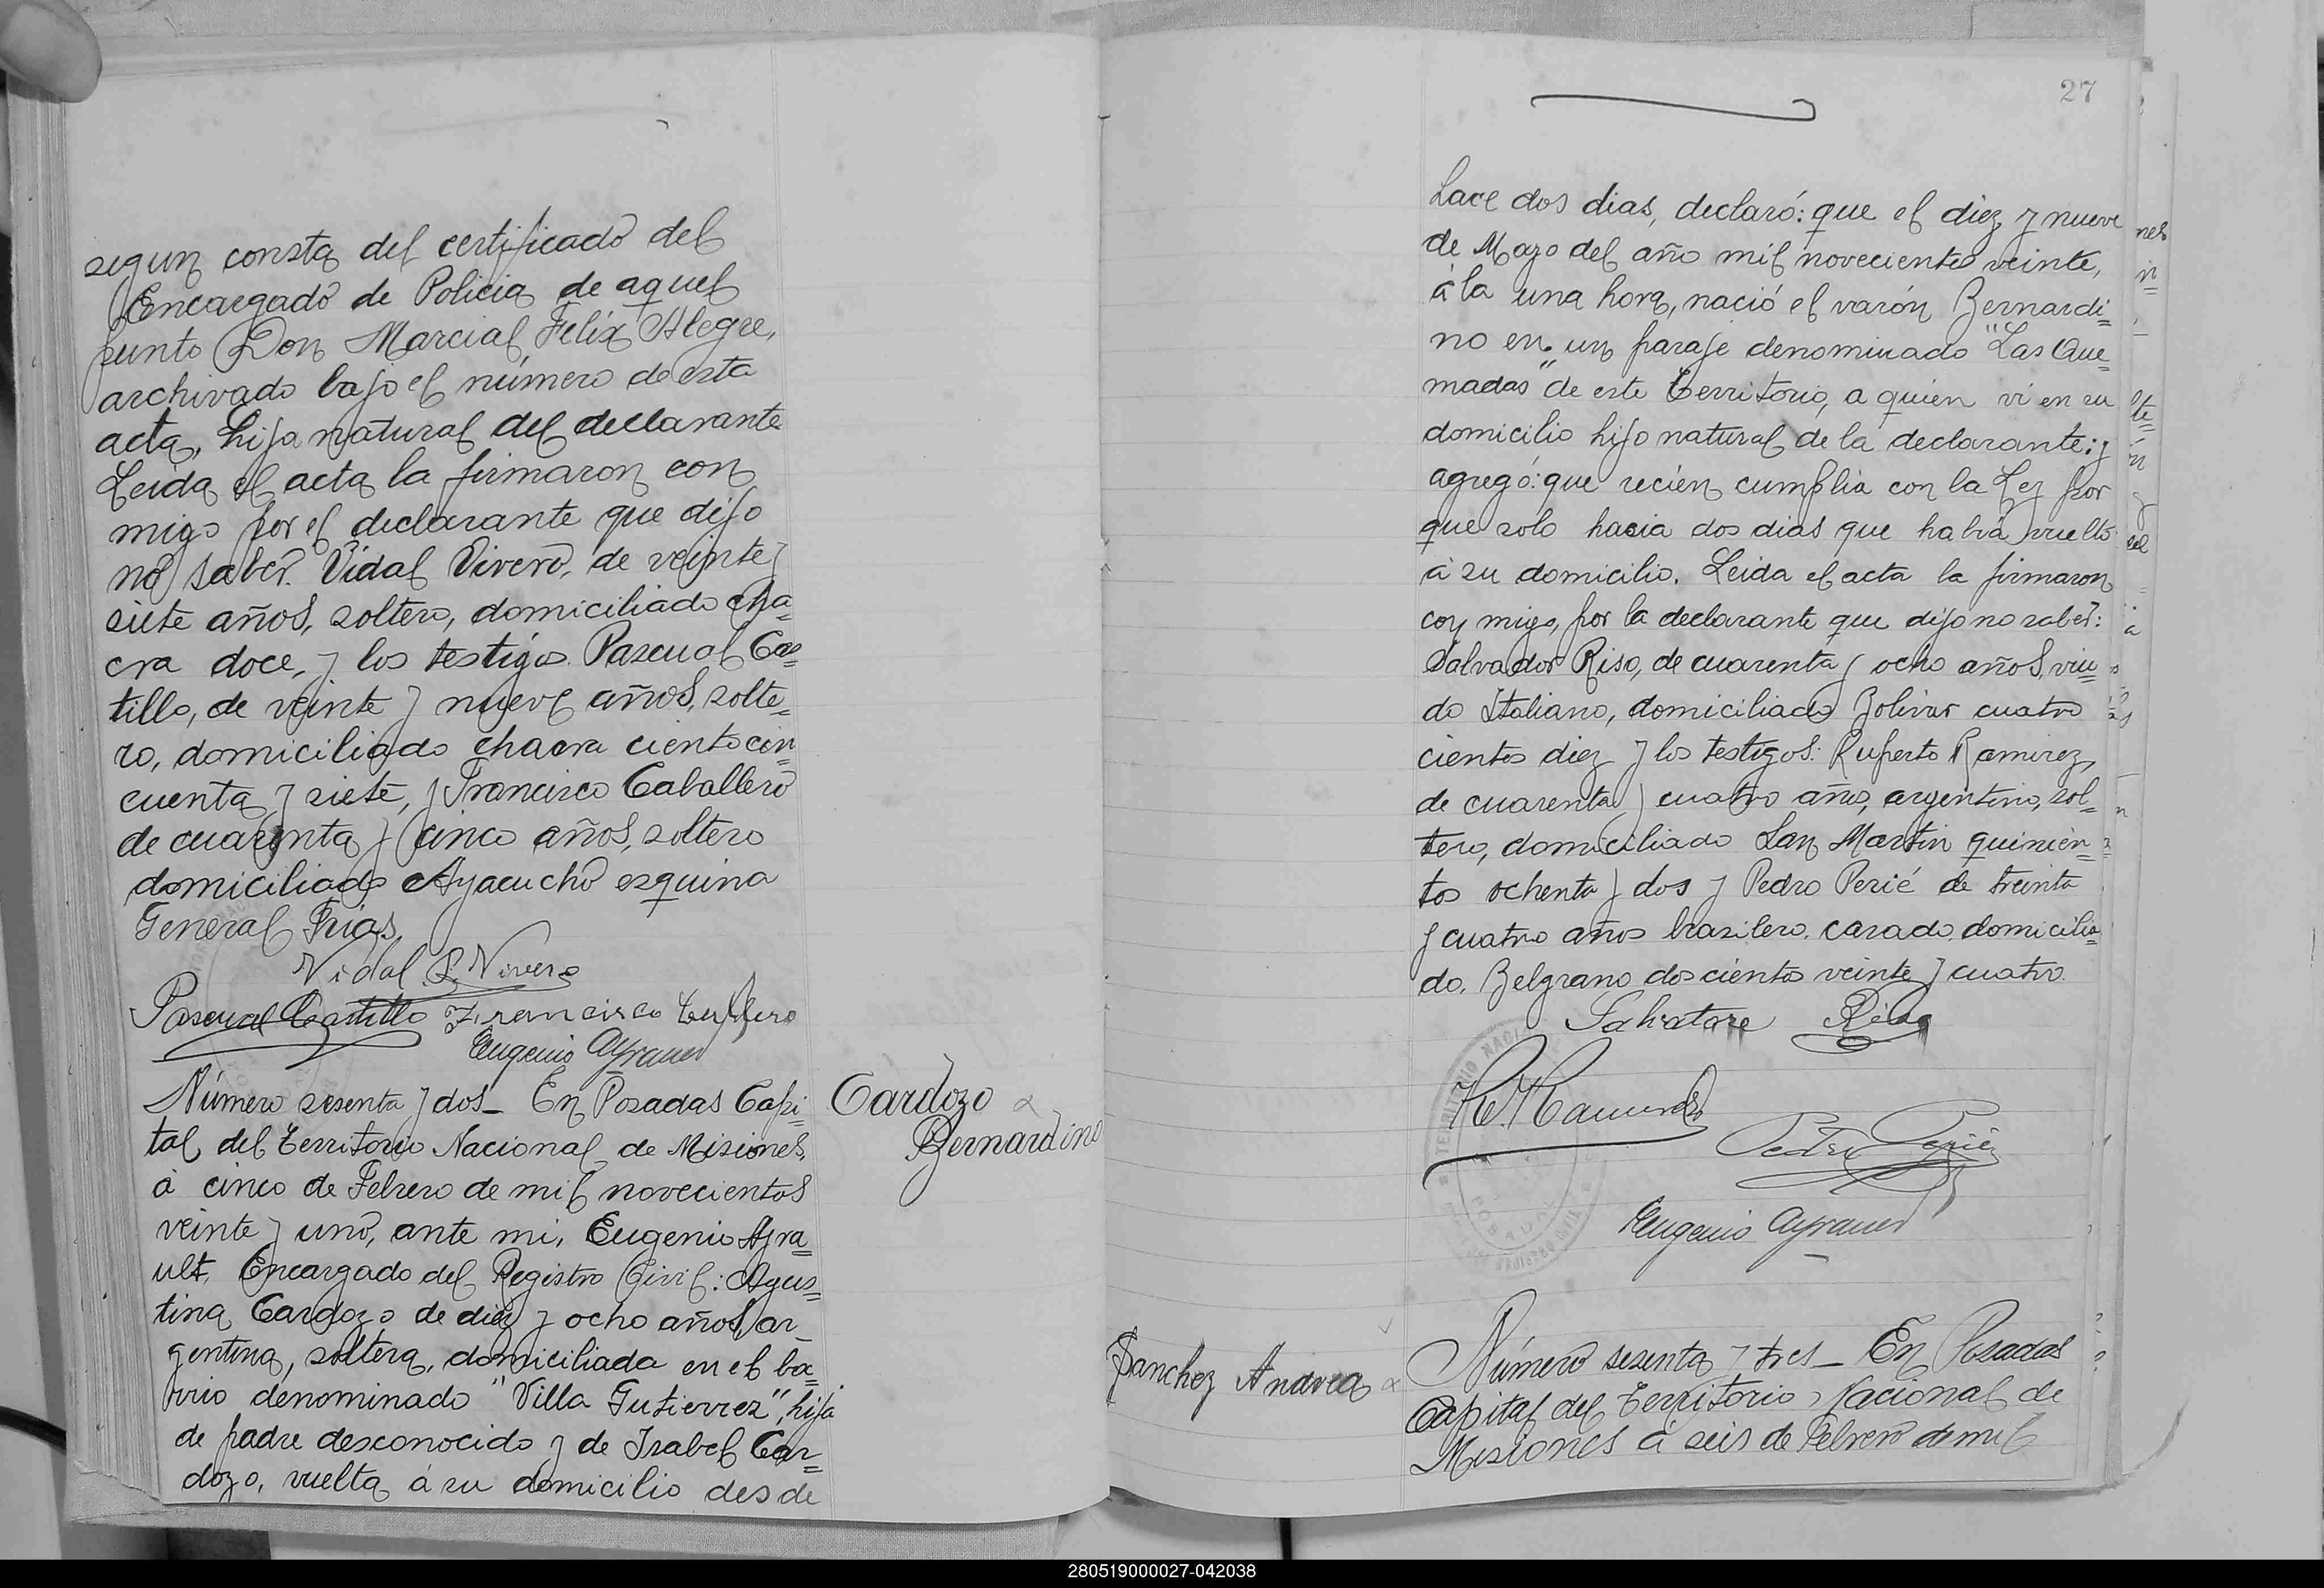 segun consta del certificado del
Encargado de Policia de aquel
punto Don Marcial Felix Alegre,
archivado bajo el número de esta
acta, hija natural del declarante
Leida el acta la firmaron con
migo por el declarante que dijo
no saber. Vidal Vivero, de veinte y
siete años, soltero, domiciliado cha=
cra doce, y los testigos Pascual Cas=
tillo, de veinte y nueve años, solte=
ro, domiciliado chacra ciento cin=
cuenta y siete, y Francisco Caballero
de cuarenta y cinco años, soltero
domiciliado Ayacucho esquina
General Frias.
Vidal Vivero
Pascual Castillo Francisco
Eugenio Ayrault
Número sesenta y dos_ En Posadas Capi=
tal del Territorio Nacional de Misiones,
á cinco de Febrero de mil novecientos
veinte y uno, ante mi, Eugenio Ayra=
ult, Encargado del Registro Civil: Agus=
tina Cardozo de diez y ocho años, ar_
gentina, soltera, domiciliada en el ba=
rrio denominado "Villa Gutierrez", hija
de padre desconocido y de Isabel Car=
dozo, vuelta á su domicilio desde
Cardozo
Bernardino
27
hace dos dias, declaró: que el diez y nueve
de Mayo del año mil novecientos veinte,
á la una hora, nació el varón Bernardi=
no en un paraje denominado "Las Que=
madas" de este Territorio, a quien vi en su
domicilio hijo natural de la declarante: y
agregó: que recien cumplia con la Ley por
que solo hacia dos dias que habia vuelto
á su domicilio. Leida el acta la firmaron
con migo, por la declarante que dijo no saber:
Salvador Riso, de cuarenta y ocho años, viu=
do Italiano, domiciliado Bolivar cuatro
cientos diez y los testigos: Ruperto Ramirez,
de cuarenta y cuatro años, argentino, sol=
tero, domiciliado San Martin quinien=
tos ochenta y dos y Pedro Perié de treinta
y cuatro años brasilero, casado, domicilia=
do, Belgrano doscientos veinte y cuatro.
Salvatore Riso
R. Ramirez
Pedro Perié
Eugenio Ayrault
Sanchez Andrea
Número sesenta y tres_ En Posadas
Capital del Territorio Nacional de
Misiones á seis de Febrero de mil
280519000027-042038